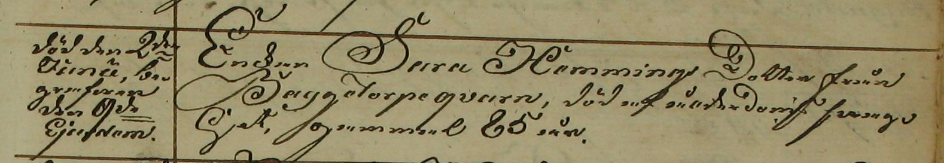 död den 2dra
Junii, be-
grafven
den 9de
Ejusdem.
Enckan Sara Hemmings Dotter från
Baggetorps qvarn, död af
gammal 85 åar.